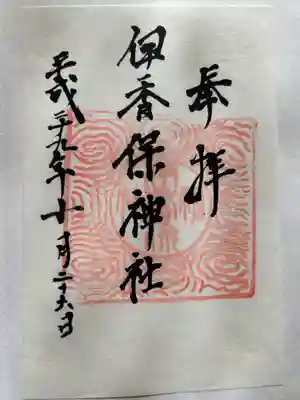 奉拝
伊香保神社
平成二十九年月二十六日